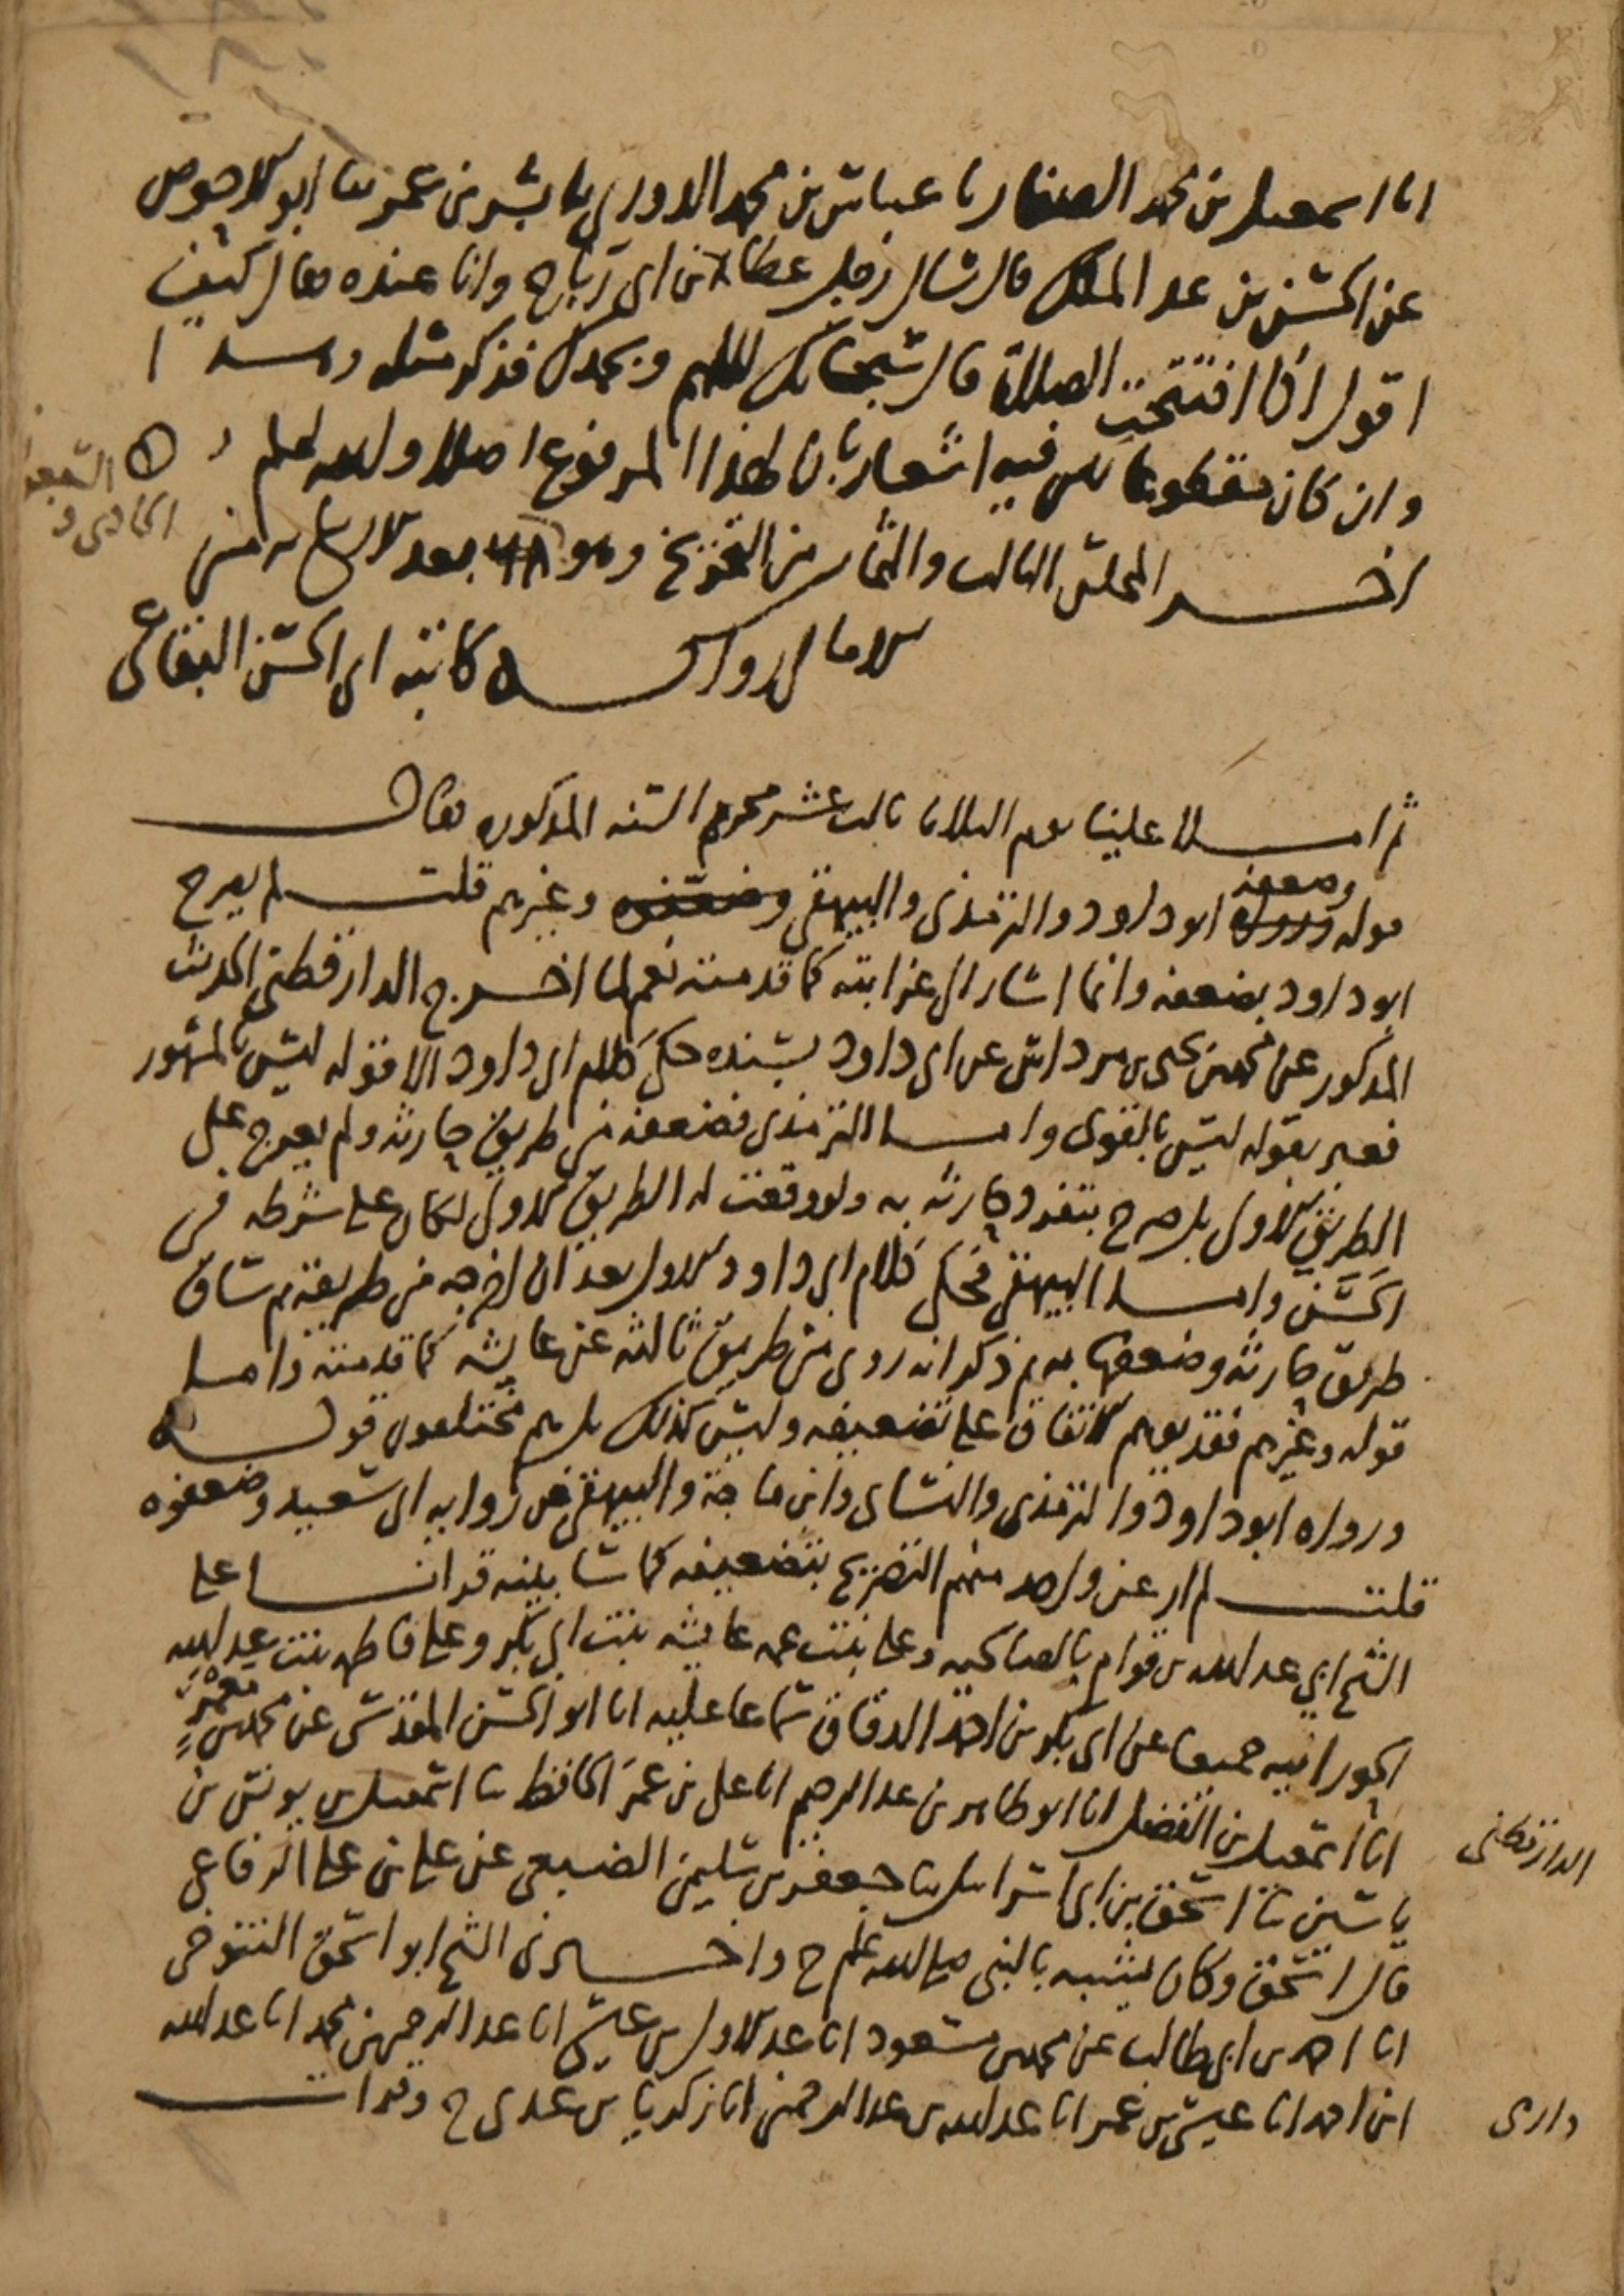 انا اسمعيل بن محمد الصفار نا عباس بن محمد الدوري نا بشر بن عمر نا ابو الاحوص
عن الحسن بن عبد الملك قال سال رجل عطاء بن ابي رباح وانا عنده فقال كيف
اقول اذا افتتحت الصلاة قال سبحانك اللهم وبحمدك فذكر مثله وهــذا
وان كان مقطوعا لكن فيه اشعار بان لهذا المرفوع اصلا والله اعلم
اخــر المجلس الثالث والثمانين من التخريج وهو بعد الاربعمائة من
الامالي رواية كاتبه ابي الحسن البقاعي
ثم امــلا علينا يوم الثلاثا ثالث عشر محرم السنه المذكوره فقال
قوله وضعفه ابو داود والترمذي والبيهقي وغيرهم قلت لم يصرح
ابو داود بضعفه وانما اشار الى غرابته كما قدمته نعم لما اخــرج الدارقطني الحديث
المذكور عن محمد بن يحيى بن مرداس عن ابي داود بسنده حكى كلام ابي داود الا قوله ليس بالمشهور
فعبر بقوله ليس بالقوي وامــا الترمذي فضعفه من طريق حارثه ولم يعرج على
الطريق الاول بل صرح بتفرد حارثه به ولو وقعت له الطريق الاول لكان على شرطه في
الحسن وامــا البيهقي فحكى كلام ابي داود الاول بعد ان اخرجه من طريقه ثم ساق
طريق حارثه وضعفها به ثم ذكر انه روي من طريق ثالثه عن عايشه كما قدمته وامــا
قوله وغيرهم فقد يوهم الاتفاق على تضعيفه وليس كذلك بل هم مختلفون قولــه
ورواه ابو داود والترمذي والنساي وابن ماجة والبيهقي من رواية ابي سعيد وضعفوه
قلــت لم ار عن واحد منهم التصريح بتضعيفه كما سابينه قرات على
الشيخ ابي عبد الله بن قوام بالصالحيه وعلى بنت عمه عايشه بنت ابي بكر وعلى فاطمه بنت عبد الله
الحورانيه جميعا عن ابي بكر بن احمد الدقاق سماعا عليه انا ابو الحسن المقدسي عن محمد بن معمر
انا اسمعيل بن الفضل انا ابو طاهر بن عبد الرحيم انا علي بن عمر الحافظ نا اسمعيل بن يونس بن
ياسين نا اسحق بن ابي اسرايل نا جعفر بن سليمن الضبعي عن علي بن علي الرفاعي
الدارقطني
قال اسحق وكان يشبه بالنبي صلى الله عليه وسلم ح واخــبرني الشيخ ابو اسحق التنوخي
انا احمد بن ابي طالب عن محمد بن مسعود انا عبد الاول بن عيسى انا عبد الرحمن بن محمد انا عبد الله
ابن احمد انا عيسى بن عمر انا عبد الله بن عبد الرحمن انا زكريا بن عدي ح وقرات
دارمي